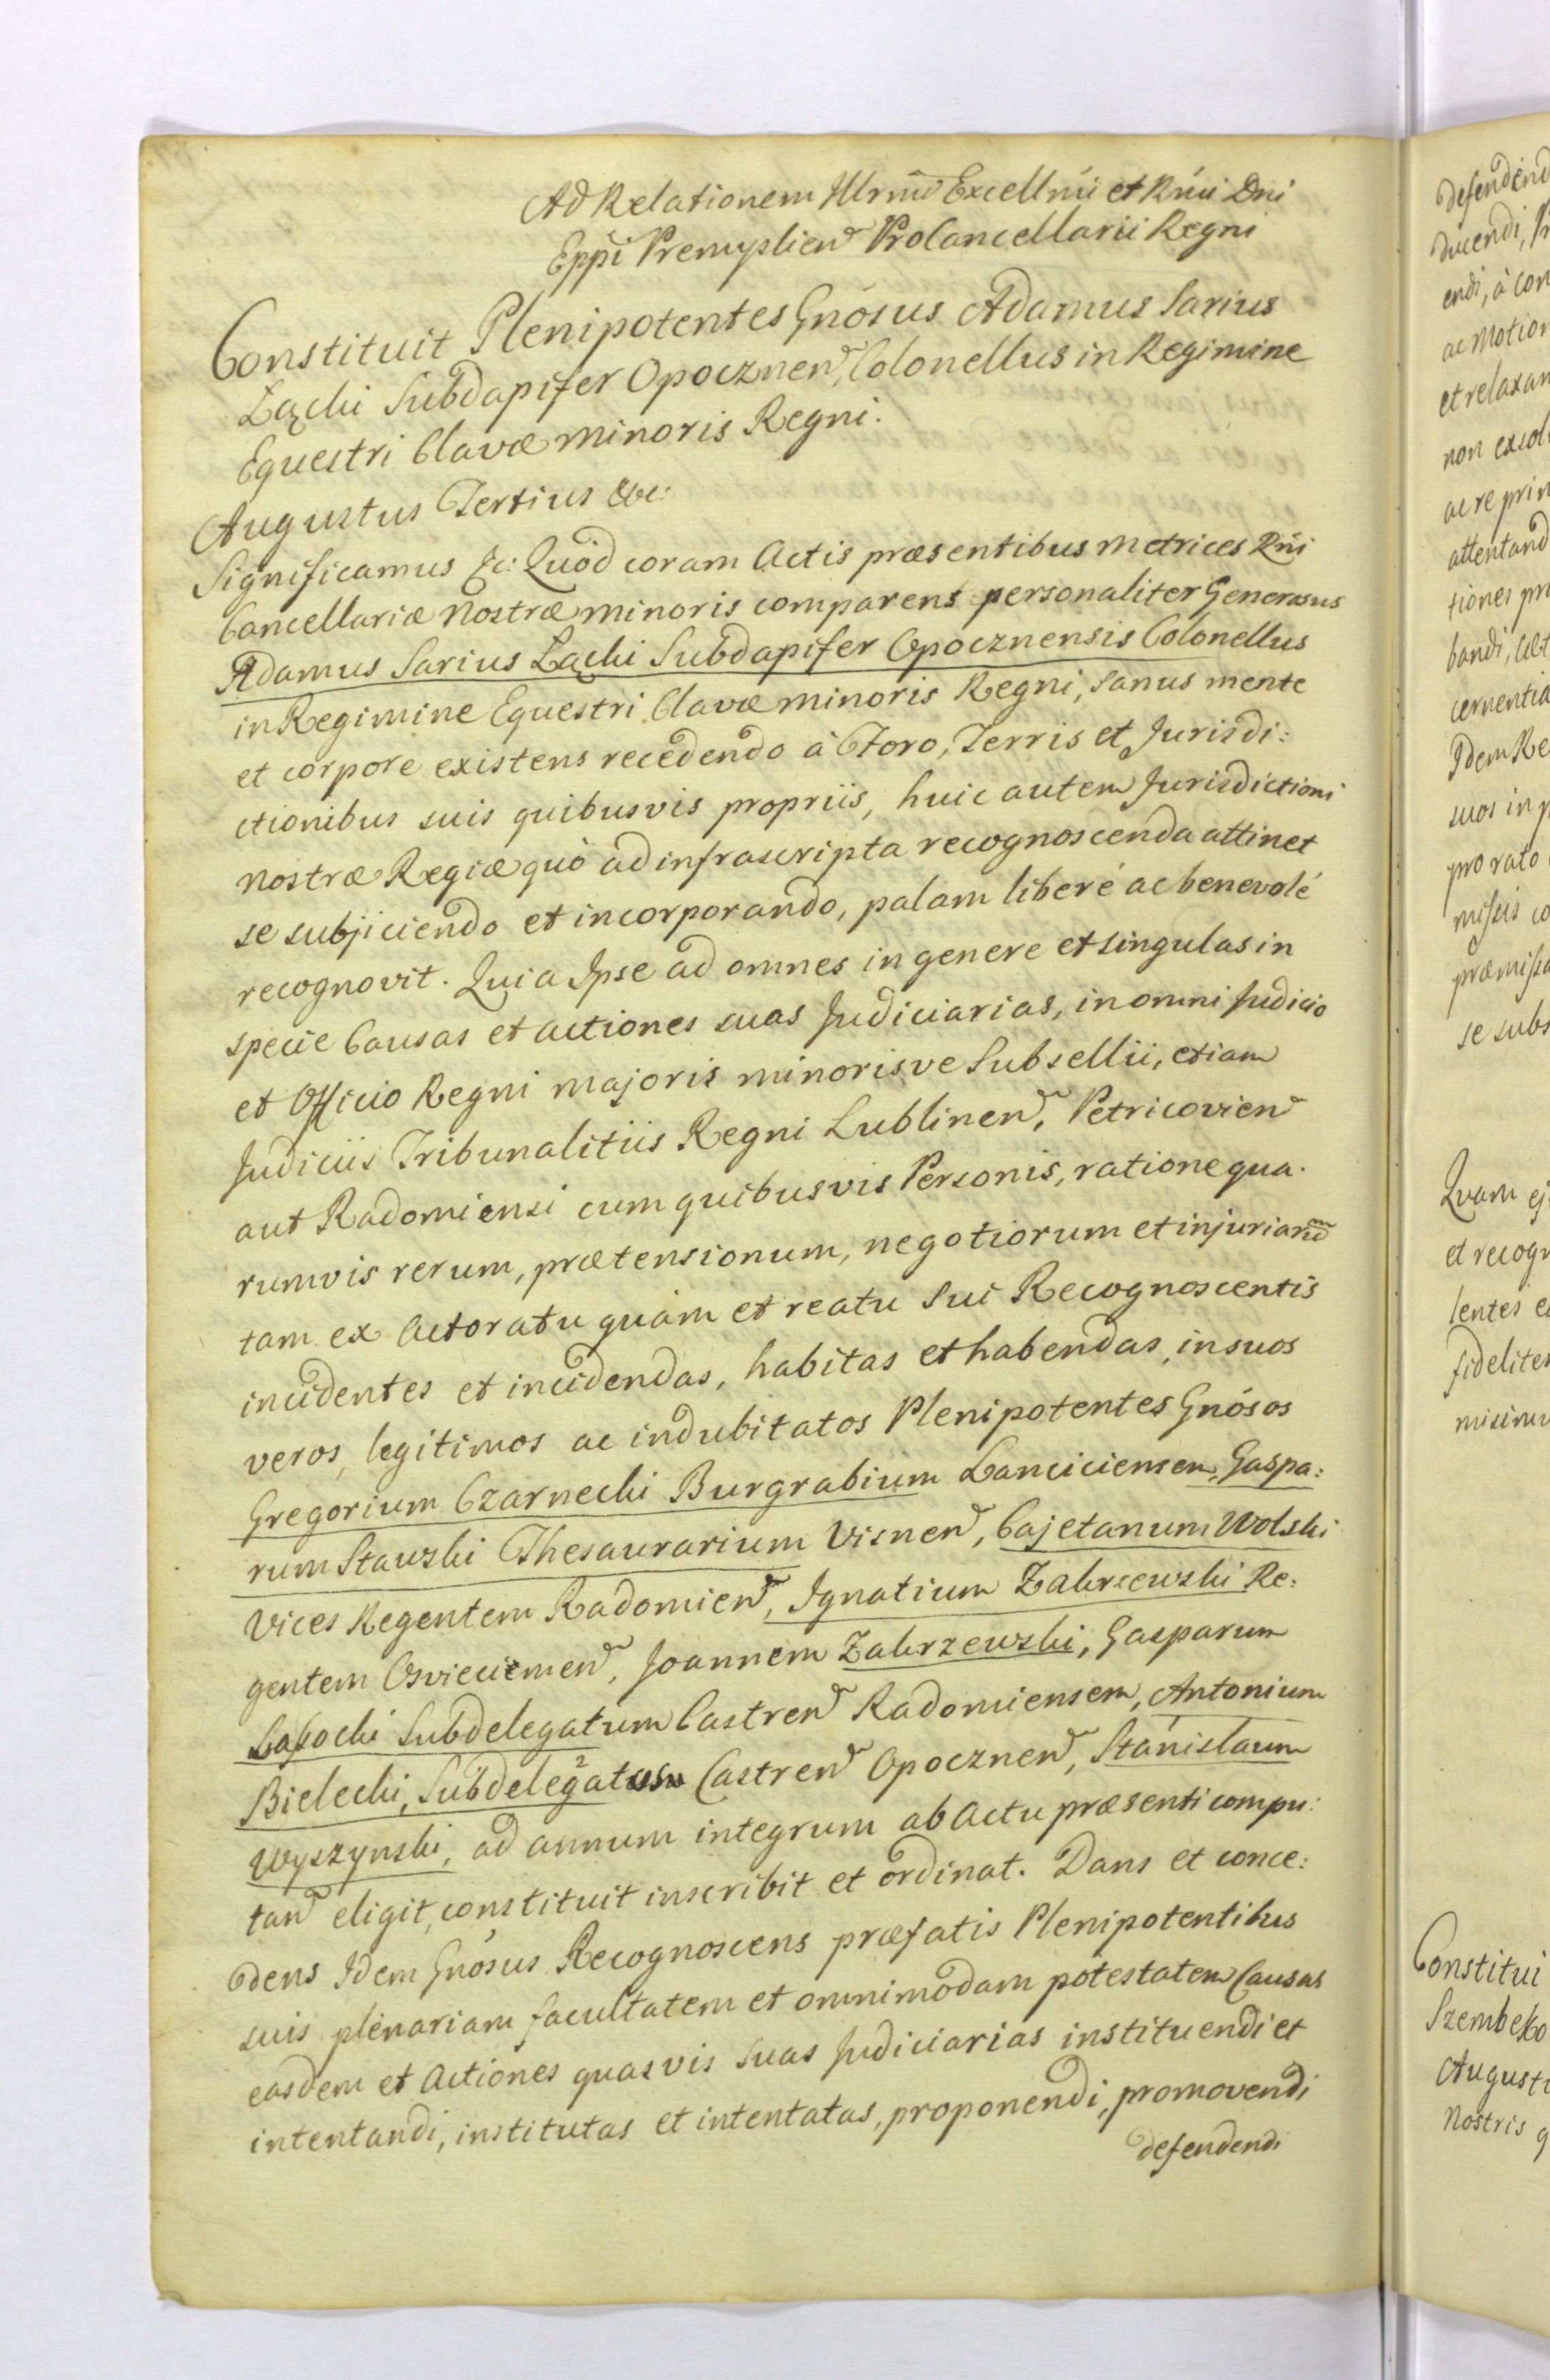 Ad Relationem Illrmi Excellmi et Rmi Dni
Eppi Premyslien Procancellarii Regni
Constituit Plenipotentes Gnosus Adamus Sarius
Łącki Subdapifer Opocznen, Colonellus in Regimine
Equestri Clavæ minoris Regni.
Augustus Tertius &c:
Significamus &c: Quod coram Actis præsentibus Metrices Rni
Cancellariæ Nostræ minoris comparens personaliter Generosus
Adamus Sarius Łącki Subdapifer Opocznensis Colonellus
in Regimine Equestri Clavæ minoris Regni, sanus mente
et corpore existens recedendo à Foro, Terris et Jurisdi:
ctionibus suis quibusvis propriis, huic autem Jurisdictioni
Nostræ Regiæ quò ad infrascripta recognoscenda attinet
se subjiciendo et incorporando, palam liberé ac benevolé
recognovit. Quia Ipse ad omnes in genere et singulas in
specie Causas et actiones suas Judiciarias, in omni Judicio
et Officio Regni majoris minorisve Subsellii, etiam
Judiciis Tribunalitiis Regni Lublinen, Petricovien
aut Radomiensi cum quibusvis Personis, ratione qua.
rumvis rerum, prætensionum, negotiorum et injuriarum
tam ex Actoratu quàm et reatu Sui Recognoscentis
incidentes et incidendas, habitas et habendas, in suos
veros, legitimos ac indubitatos Plenipotentes Gnósos
Gregorium Czarnecki Burgrabium Lanciciensem, Gaspa:
rum Stawski Thesaurarium Visnen, Cajetanum Wolski
Vices Regentem Radomien, Ignatium Zakrzewski Re:
gentem Osviecimen, Joannem Zakrzewski, Gasparum
Łasocki Subdelegatum Castren Radomiensem, Antonium
Bielecki, Subdelegatum Castren Opocznen, Stanislaum
Wyszynski, ad annum integrum ab Actu præsenti compu:
tan eligit, constituit inscribit et ordinat. Dans et conce:
dens Idem Gnósus Recognoscens præfatis Plenipotentibus
suis plenariam facultatem et omnimodam potestatem Causas
easdem et Actiones quasvis suas Judiciarias instituendi et
intentandi, institutas et intentatas, proponendi, promovendi
defendendi
defendend
ducendi,
endi, à con
ac Motion
et relaxan
non exsol
ac re prin
attentand
tiones pr
bandi,
cernentia
Idem Re
suos in p
pro rato
missis co
præmissa
se subs
Quam ej
et recogn
lentes
fideliter
Constitui
Szembeko
Augusti
Nostris q